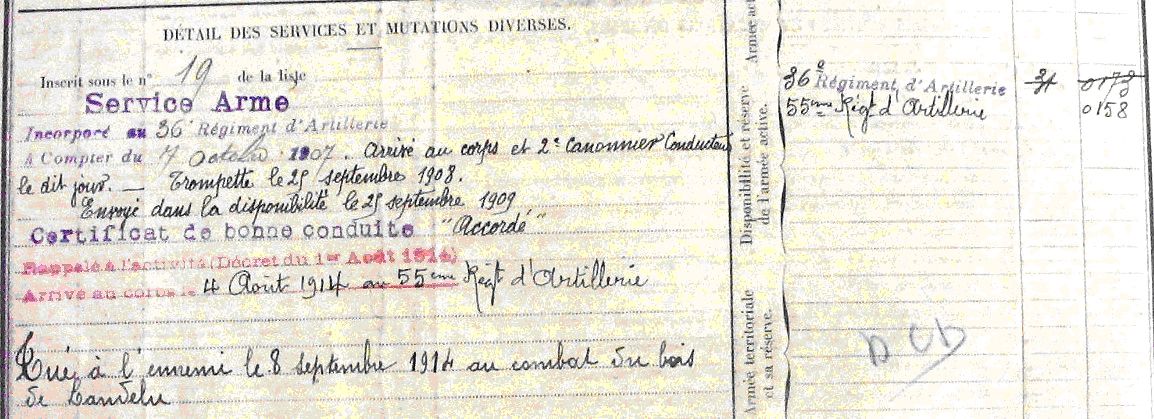 DÉTAIL DES SERVICES ET MUTATIONS DIVERSES.
Inscrit sous le n° 19 de la liste
Service Armé
Incorporé au 36e Régiment d'Artillerie
à Compter du 7 octobre 1907. Arrivé au corps et 2e Canonnier Conducteur
le dit jour. — Trompette le 25 septembre 1908.
Envoyé dans la disponibilité le 25 septembre 1909
Certificat de bonne conduite "Accordé"
Rappelé à l'activité (Décret du 1er Août 1914)
Arrivé au corps le 4 Août 1914 au 55eme Régt d'Artillerie
Tué à l'ennemi le 8 septembre 1914 au combat du bois
de Landelu
Armée act
Disponibilité et réserve
de l'armée active.
Armée territoriale
et sa réserve.
36e Régiment d'Artillerie
55eme Régt d'Artillerie 0158
DCD